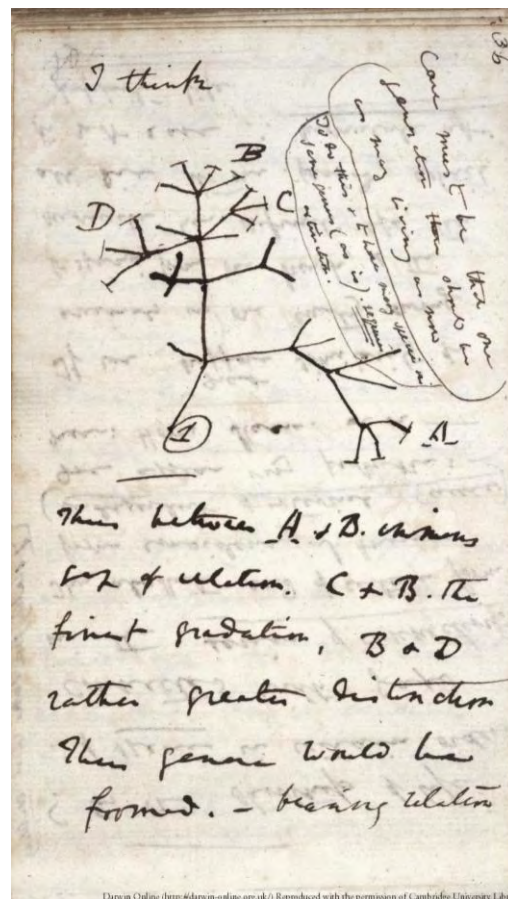 36
I think
Case must be that one
generation then should be
as many living as now
To do this & to have many species in
same genus (as is). requires
extinction.
B
C
D
A
1
Thus between A & B. immens
gap of relation. C & B. the
finest gradation, B & D
rather greater distinction
Thus genera would be
formed. — bearing relation
Darwin Online (http://darwin-online.org.uk/) Reproduced with the permission of Cambridge University Libr